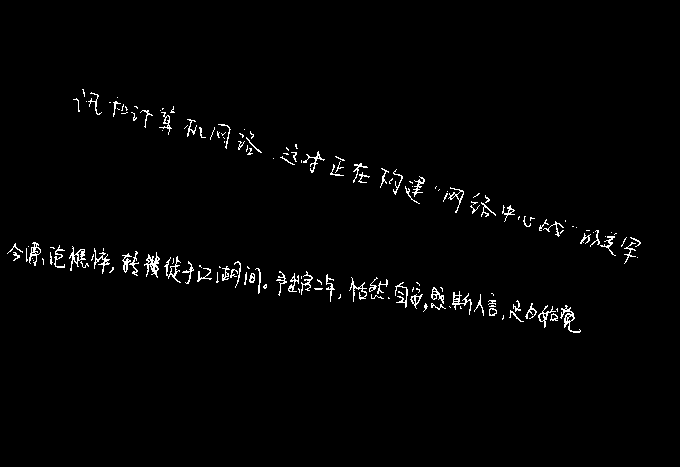 讯和计算机网络.这对正在构建“网络中心战”的美军
今漂沦憔悴,转徙于江湖间。予出官二年,恬然自安,感斯人言,是夕始觉